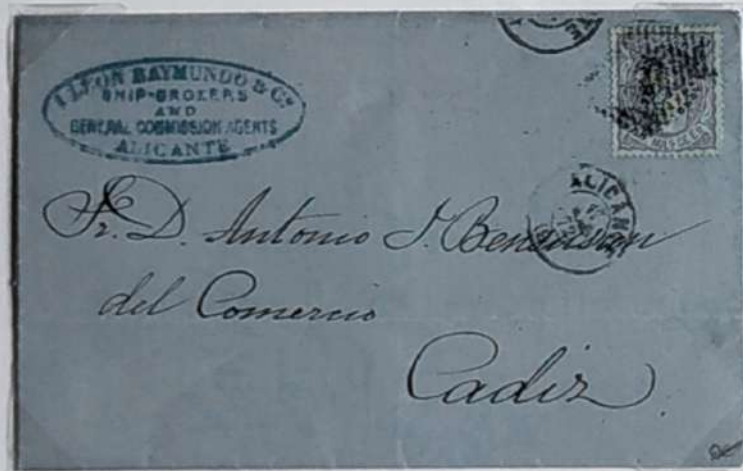 LEON RAYMUNDO & Cº
SHIP-BROKERS
AND
GENERAL COMMISSION AGENTS
ALICANTE
ALICAN
Sr. D. Antonio J. Bensusan
del Comercio
Cadiz